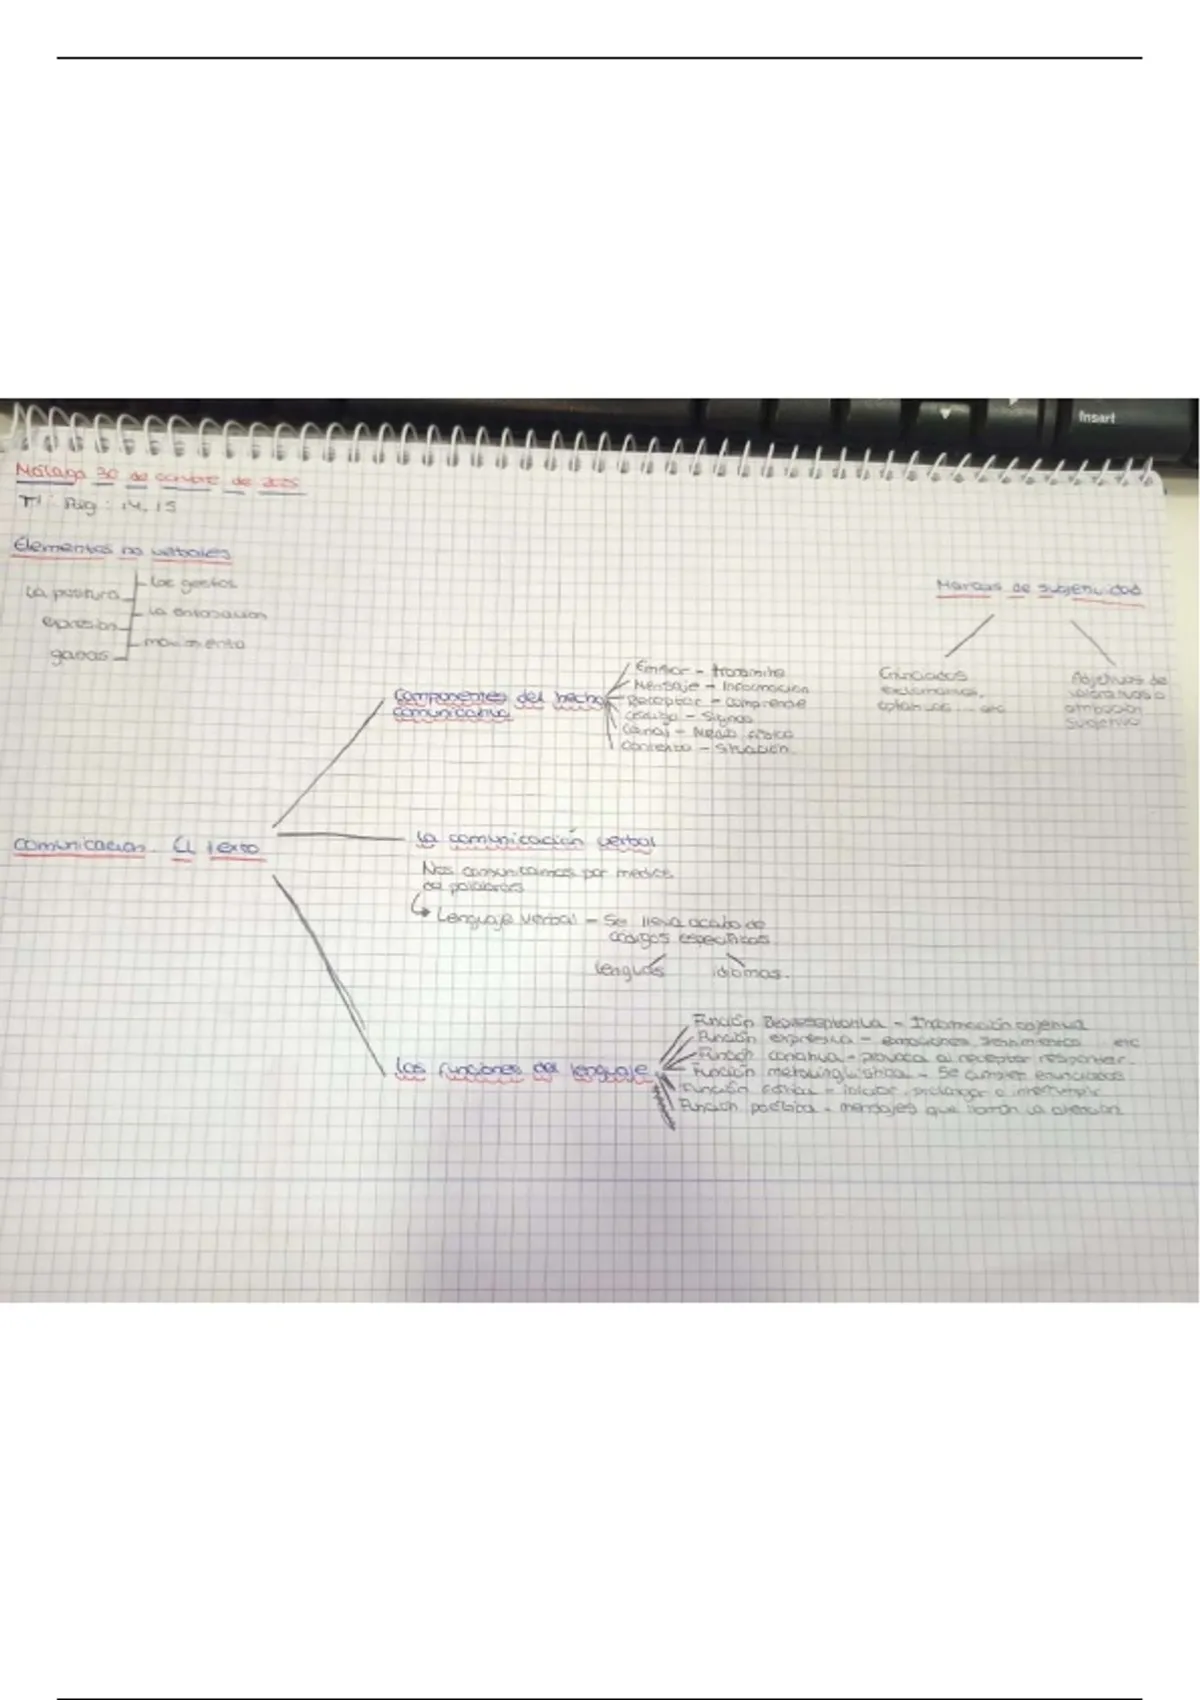 Insert
Málaga 30 de octubre de 2025
T1: Pág: 14, 15
Elementos no verbales
La postura
los gestos
la entonación
expresión
movimiento
ganas
Marcas de subjetividad
Enunciados
exclamativos,
etc
Adjetivos de
valorativos o
atribución
subjetiva
Componentes del hecho
comunicativo
Emisor - transmite
Mensaje - Información
Receptor - comprende
Código - Signos
Canal - Medio físico
Contexto - Situación.
comunicación. El texto
La comunicación verbal
Nos comunicamos por medios
de palabras
Lenguaje verbal - Se lleva acabo de
códigos específicos.
lenguas idiomas.
Las funciones del lenguaje
Función - Información objetiva
Función expresiva - emociones, sentimientos etc
Función conativa - provoca al receptor responder.
Función metalingüística - Se enunciados
Función fática - iniciar, prolongar o interrumpir
Función poética - mensajes que llaman la atención